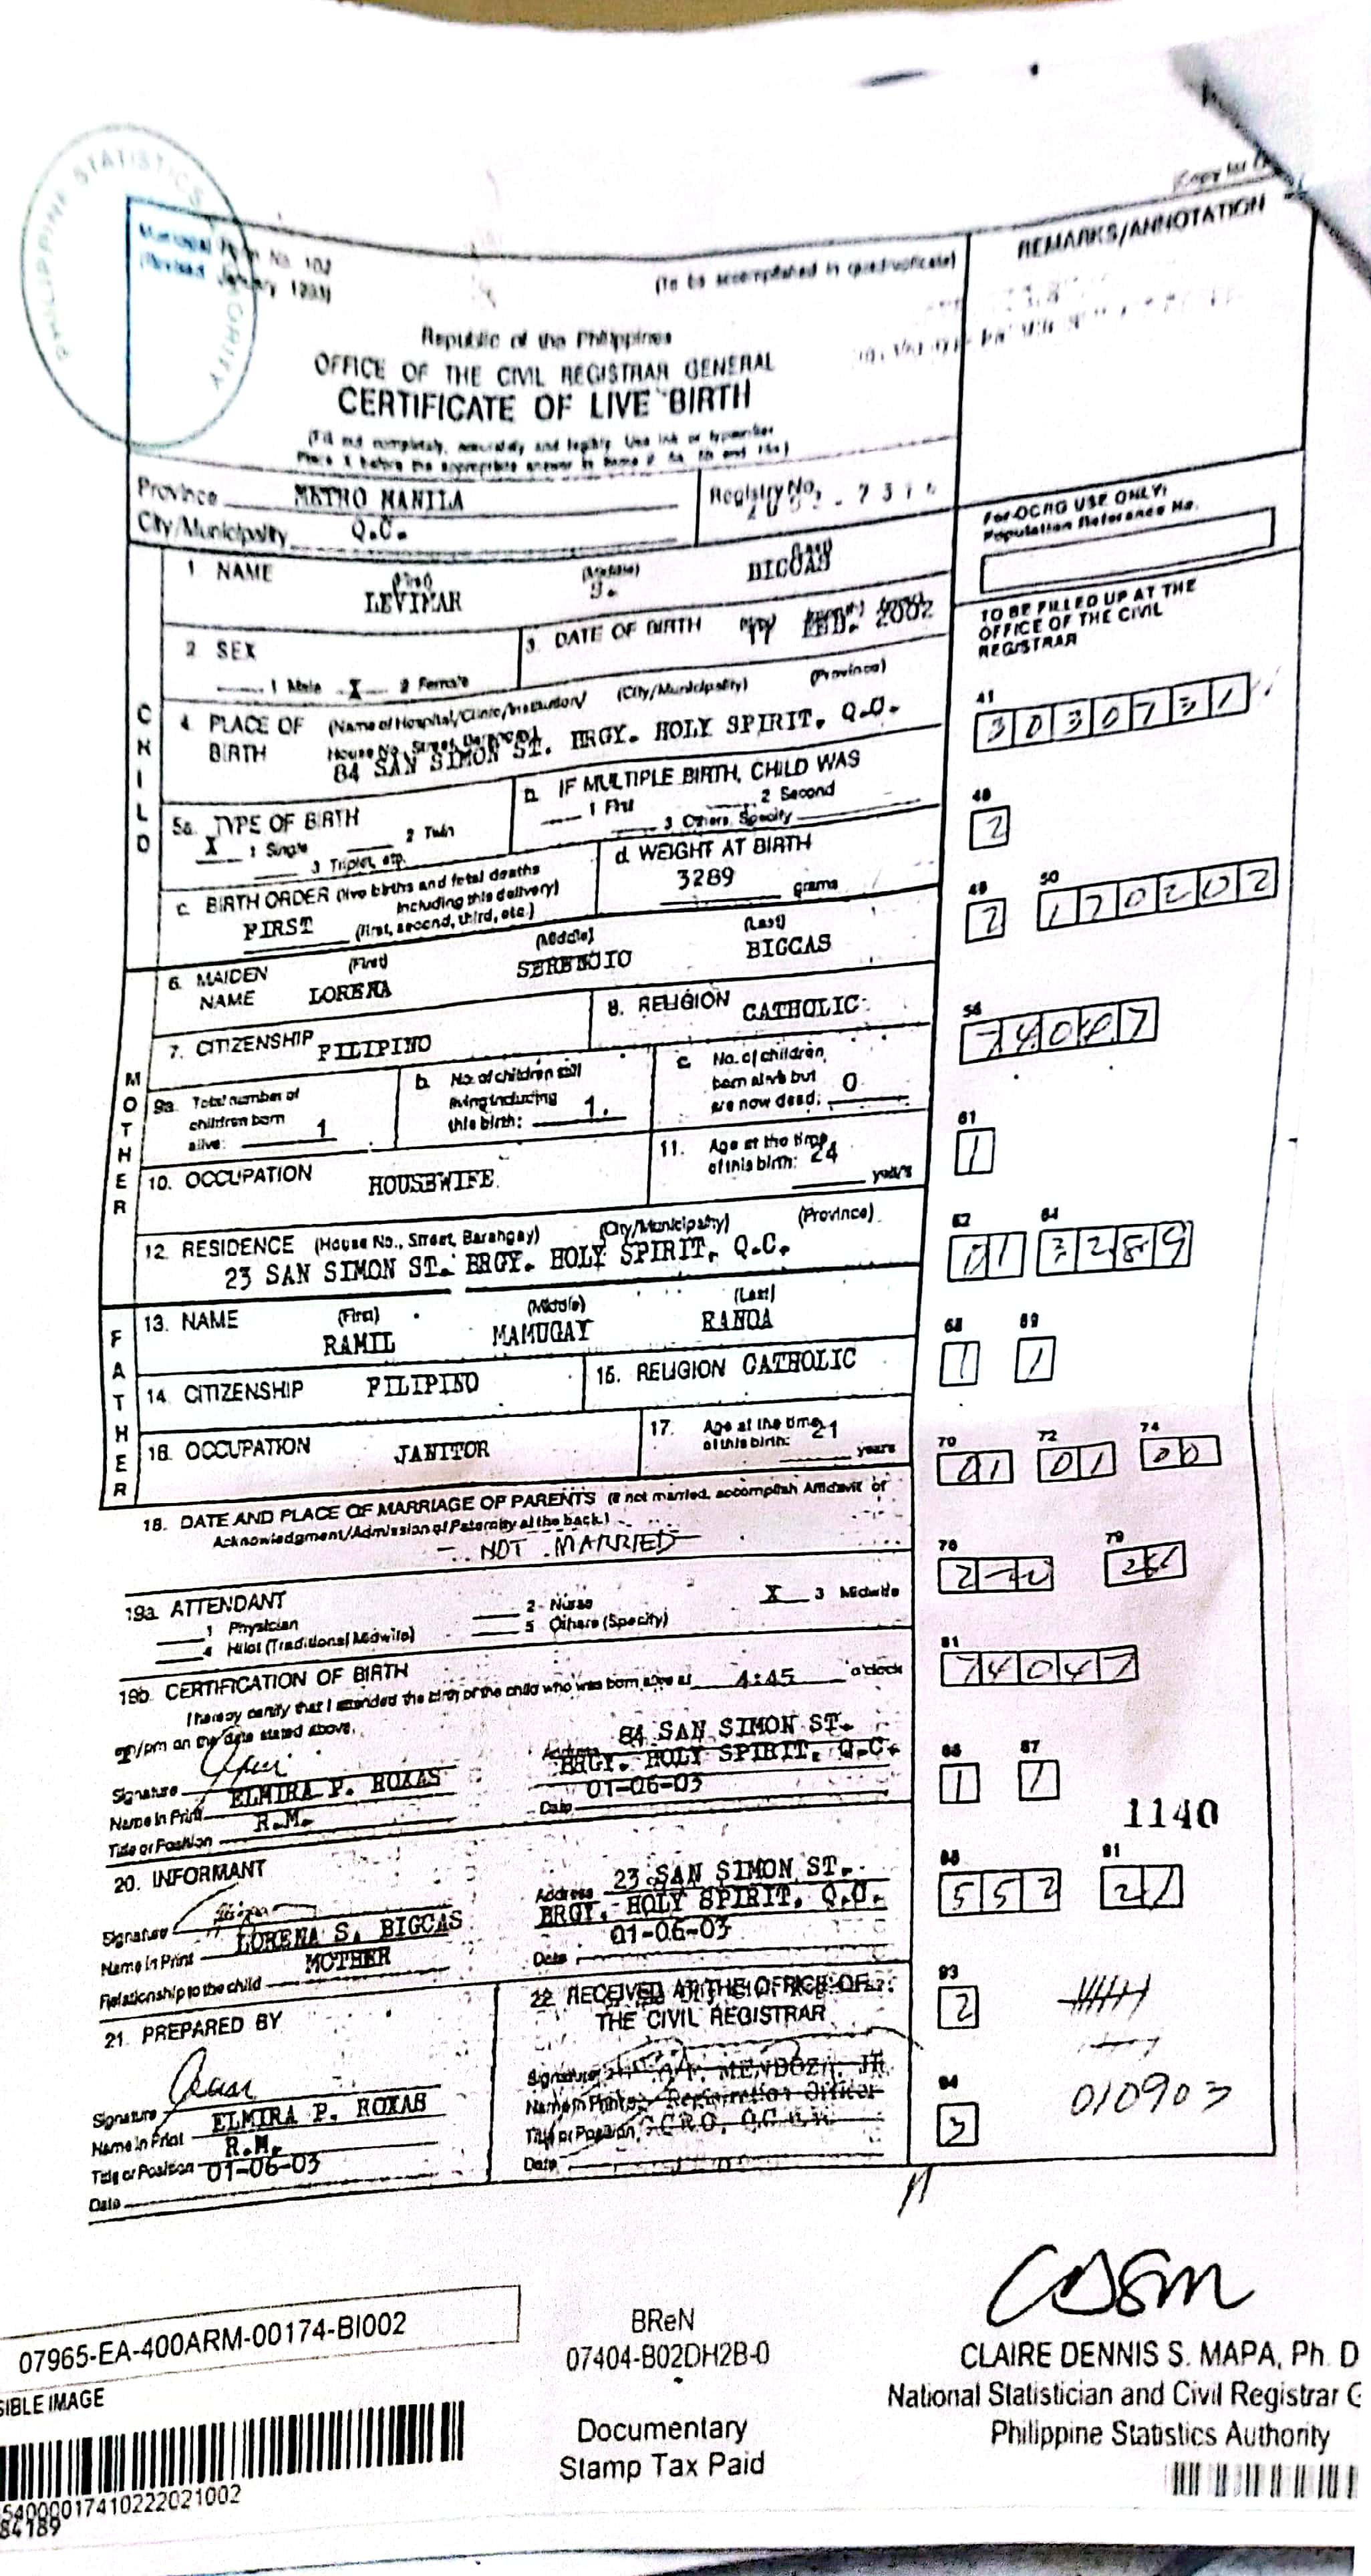 PHILIPPINE STATISTICS AUTHORITY
(Copy for
Municipal Form No. 102
(Revised January 1993)
(To be accomplished in quadruplicate)
REMARKS/ANNOTATION
Republic of the Philippines
OFFICE OF THE CIVIL REGISTRAR GENERAL
CERTIFICATE OF LIVE BIRTH
(Fill out completely, accurately and legibly. Use ink or typewriter.
Place X before the appropriate answer in items 2, 5a, 5b and 19a.)
Province METRO MANILA
Registry No.
City/Municipality Q.C.
For OCRG USE ONLY:
Population Reference No.
1. NAME (First) (Middle) (Last)
LEVIMAR S. BIGCAS
TO BE FILLED UP AT THE
OFFICE OF THE CIVIL
REGISTRAR
2. SEX
1 Male X 2 Female
3. DATE OF BIRTH (day) (month) (year)
17 FEB. 2002
CHILD
4. PLACE OF BIRTH (Name of Hospital/Clinic/Institution/ (City/Municipality) (Province)
House No., Street, Barangay)
84 SAN SIMON ST. BRGY. HOLY SPIRIT, Q.C.
41
3 0 3 0 7 3 1
5a. TYPE OF BIRTH
X 1 Single 2 Twin
3 Triplet, etc.
b. IF MULTIPLE BIRTH, CHILD WAS
1 First 2 Second
3 Others, Specify
48
2
c. BIRTH ORDER (live births and fetal deaths
including this delivery)
FIRST (first, second, third, etc.)
d. WEIGHT AT BIRTH
3289 grams
49 50
2 1 7 0 2 0 2
MOTHER
6. MAIDEN NAME (First) (Middle) (Last)
LORENA BIGCAS
7. CITIZENSHIP FILIPINO
8. RELIGION CATHOLIC
56
9a. Total number of
children born
alive: 1
b. No. of children still
living including
this birth: 1.
c. No. of children
born alive but
are now dead: 0
61
1
10. OCCUPATION HOUSEWIFE
11. Age at the time
of this birth: 24 years
12. RESIDENCE (House No., Street, Barangay) (City/Municipality) (Province)
23 SAN SIMON ST. BRGY. HOLY SPIRIT, Q.C.
62 64
0 1 3 2 8 9
FATHER
13. NAME (First) (Middle) (Last)
RAMIL MAMUGAY RANOA
68 69
1 1
14. CITIZENSHIP FILIPINO
15. RELIGION CATHOLIC
16. OCCUPATION JANITOR
17. Age at the time
of this birth: 21 years
70 72 74
0 1 0 1 0 0
18. DATE AND PLACE OF MARRIAGE OF PARENTS (If not married, accomplish Affidavit of
Acknowledgment/Admission of Paternity at the back.)
NOT MARRIED
76 79
19a. ATTENDANT
1 Physician 2 Nurse X 3 Midwife
4 Hilot (Traditional Midwife) 5 Others (Specify)
81
7 4 0 4 7
19b. CERTIFICATION OF BIRTH
I hereby certify that I attended the birth of the child who was born alive at 4:45 o'clock
am/pm on the date stated above.
Signature
Name in Print ELMIRA P. ROXAS
Title or Position R.M.
Address 84 SAN SIMON ST.
BRGY. HOLY SPIRIT, Q.C.
Date 01-06-03
86 87
1 1
1140
20. INFORMANT
Signature
Name in Print LORENA S. BIGCAS
Relationship to the child MOTHER
Address 23 SAN SIMON ST.
BRGY. HOLY SPIRIT, Q.C.
Date 01-06-03
88 91
5 5 2 2 1
21. PREPARED BY
Signature
Name in Print ELMIRA P. ROXAS
Title or Position R.M.
Date 01-06-03
22. RECEIVED AT THE OFFICE OF
THE CIVIL REGISTRAR
Signature
Name in Print MENDOZA, JR.
Registration Officer
Title or Position
Date
93
2
94
3
010903
07965-EA-400ARM-00174-BI002
BReN
07404-B02DH2B-0
CLAIRE DENNIS S. MAPA, Ph. D
National Statistician and Civil Registrar G
Philippine Statistics Authority
SIBLE IMAGE
Documentary
Stamp Tax Paid
54000017410222021002
84189